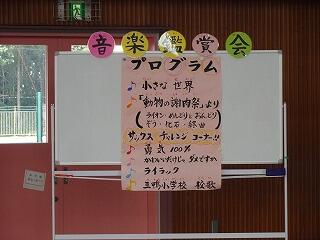 音楽鑑賞会
プログラム
小さな世界
「動物の謝肉祭」より
(ライオン・めんどりとおんどり
ぞう・化石・終曲
サックス チャレンジ コーナー!!
勇気100%
かわいいだけじゃダメですか
ライラック
小学校 校歌